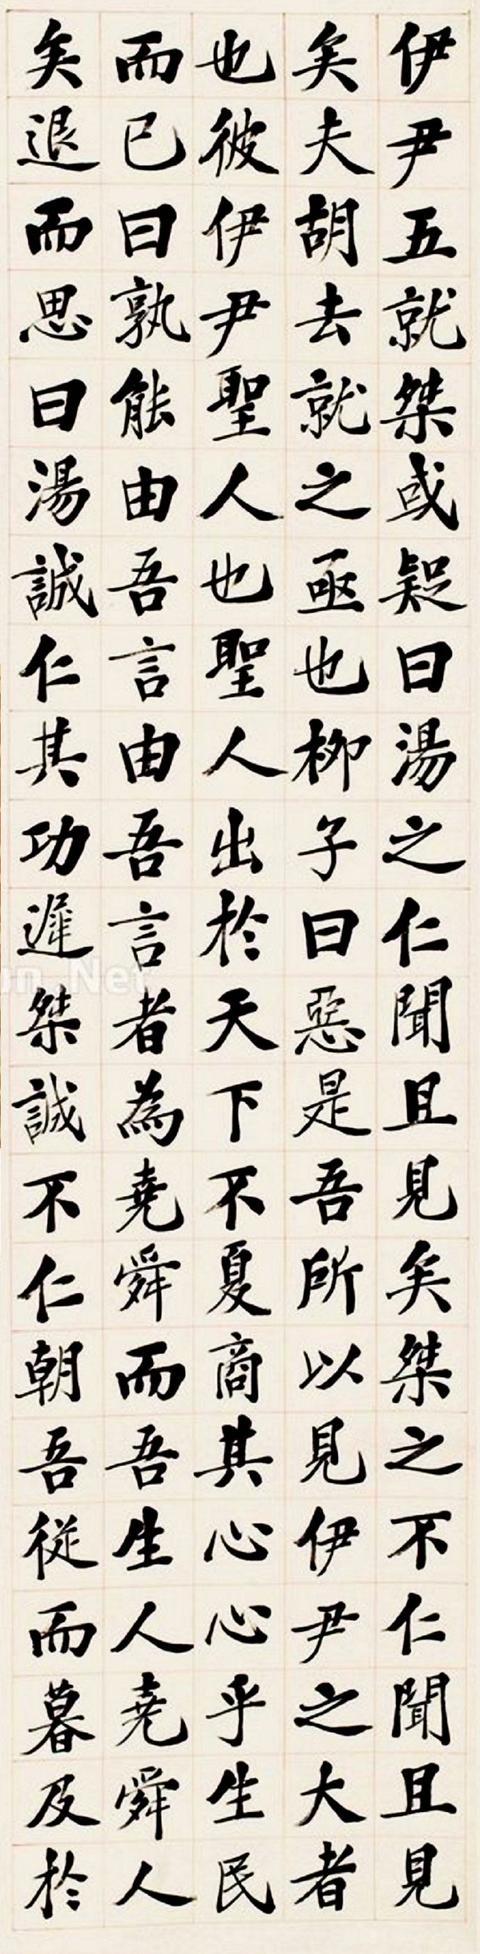 伊尹五就桀或疑曰湯之仁聞且見矣桀之不仁聞且見
矣夫胡去就之亟也柳子曰惡是吾所以見伊尹之大者
也彼伊尹聖人也聖人出於天下不夏商其心心乎生民
而已曰孰能由吾言由吾言者為堯舜而吾生人堯舜人
矣退而思曰湯誠仁其功遲桀誠不仁朝吾從而暮及於